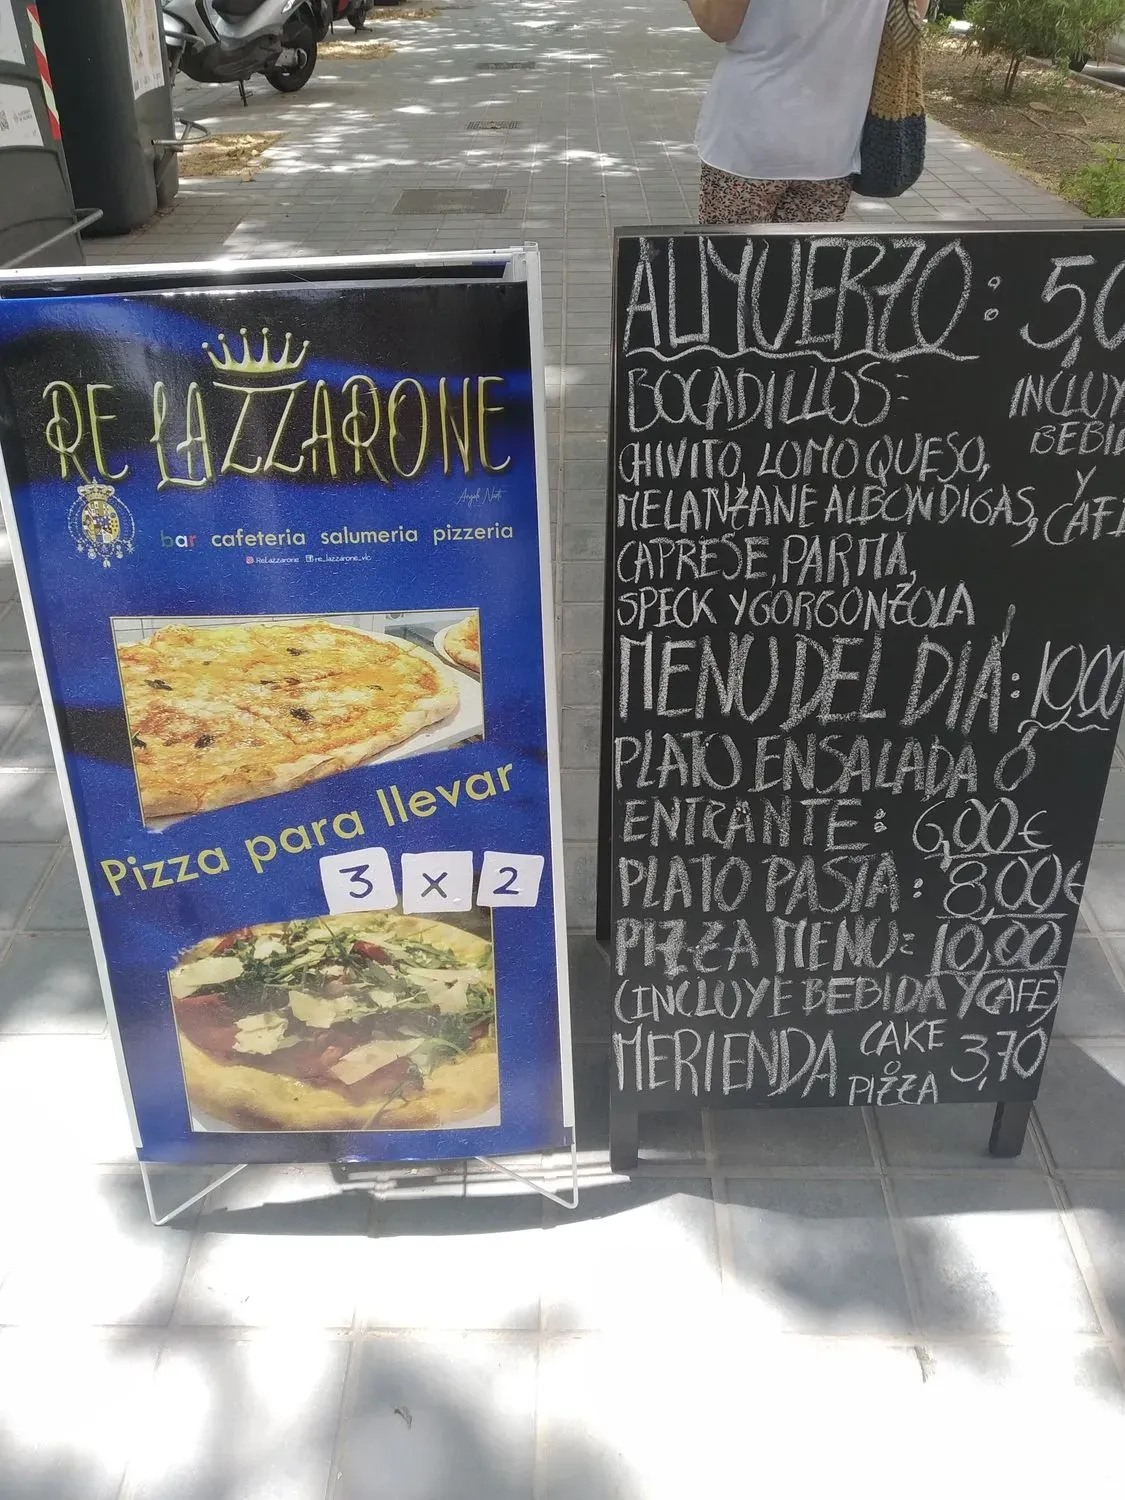 RE LAZZARONE
bar cafeteria salumeria pizzeria
ReLazzarone re_lazzarone_vlc
Pizza para llevar
3 x 2
ALMUERZO: 5,0
BOCADILLOS: INCLUY
BEBID
CHIVITO, LOMO QUESO, Y
MELANZANE ALBONDIGAS, CAFE
CAPRESE, PARMA,
SPECK Y GORGONZOLA
MENU DEL DIÁ: 10,00
PLATO ENSALADA Ó
ENTRANTE: 6,00€
PLATO PASTA: 8,00€
PIZZA MENU: 10,00
(INCLUYE BEBIDA Y CAFE)
MERIENDA CAKE O PIZZA 3,70